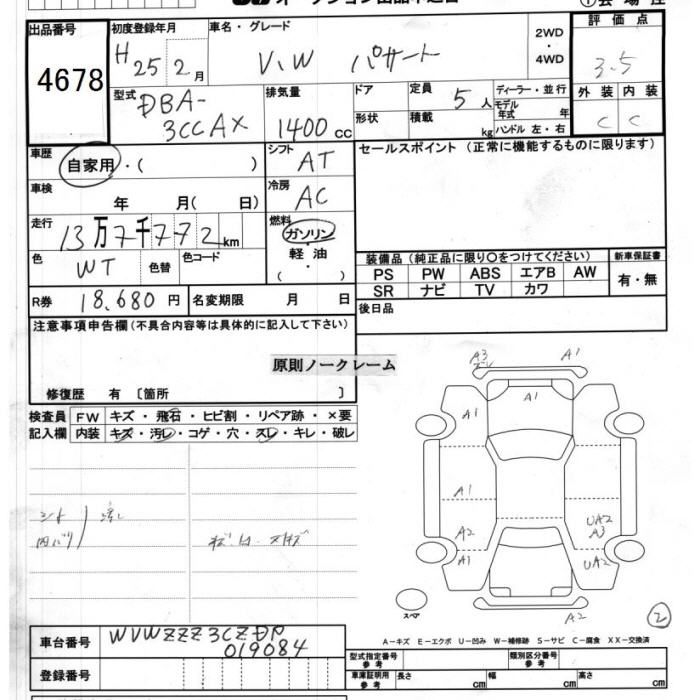 オークション出品申込書
① 会場控
出品番号
4678
初度登録年月
H 25 2月
車名・グレード
V.W パサート
2WD
・
4WD
評価点
3.5
外装 内装
C C
型式
DBA-
3CCAX
排気量
1400cc
ドア
形状
定員 5人
積載 kg
ディーラー・並行
モデル年式 年
ハンドル 左・右
車歴
自家用・( )
シフト
AT
セールスポイント (正常に機能するものに限ります)
車検
年 月( 日)
冷房
AC
走行
13万7千772km
燃料
ガソリン
・
軽油
( )
色
WT
色替
色コード
装備品 (純正品に限り〇をつけてください)
新車保証書
PS PW ABS エアB AW
SR ナビ TV カワ
有・無
R券 18.680円
名変期限 月 日
後日品
注意事項申告欄(不具合内容等は具体的に記入して下さい)
原則ノークレーム
修復歴 有 〔箇所 〕
検査員
記入欄
FW キズ・飛石・ヒビ割・リペア跡・×要
内装 キズ・汚レ・コゲ・穴・スレ・キレ・破レ
シート
内バリ
A3
A1
A1
A1
A1
A2
A1
UA2
A3
UA2
A2
スペア
②
A-キズ E-エクボ U-凹み W-補修跡 S-サビ C-腐食 XX-交換済
車台番号
WVWZZZ3CZDP
019084
登録番号
型式指定番号
参考
類別区分番号
参考
車庫証明用
参考
長さ cm 幅 cm 高さ cm